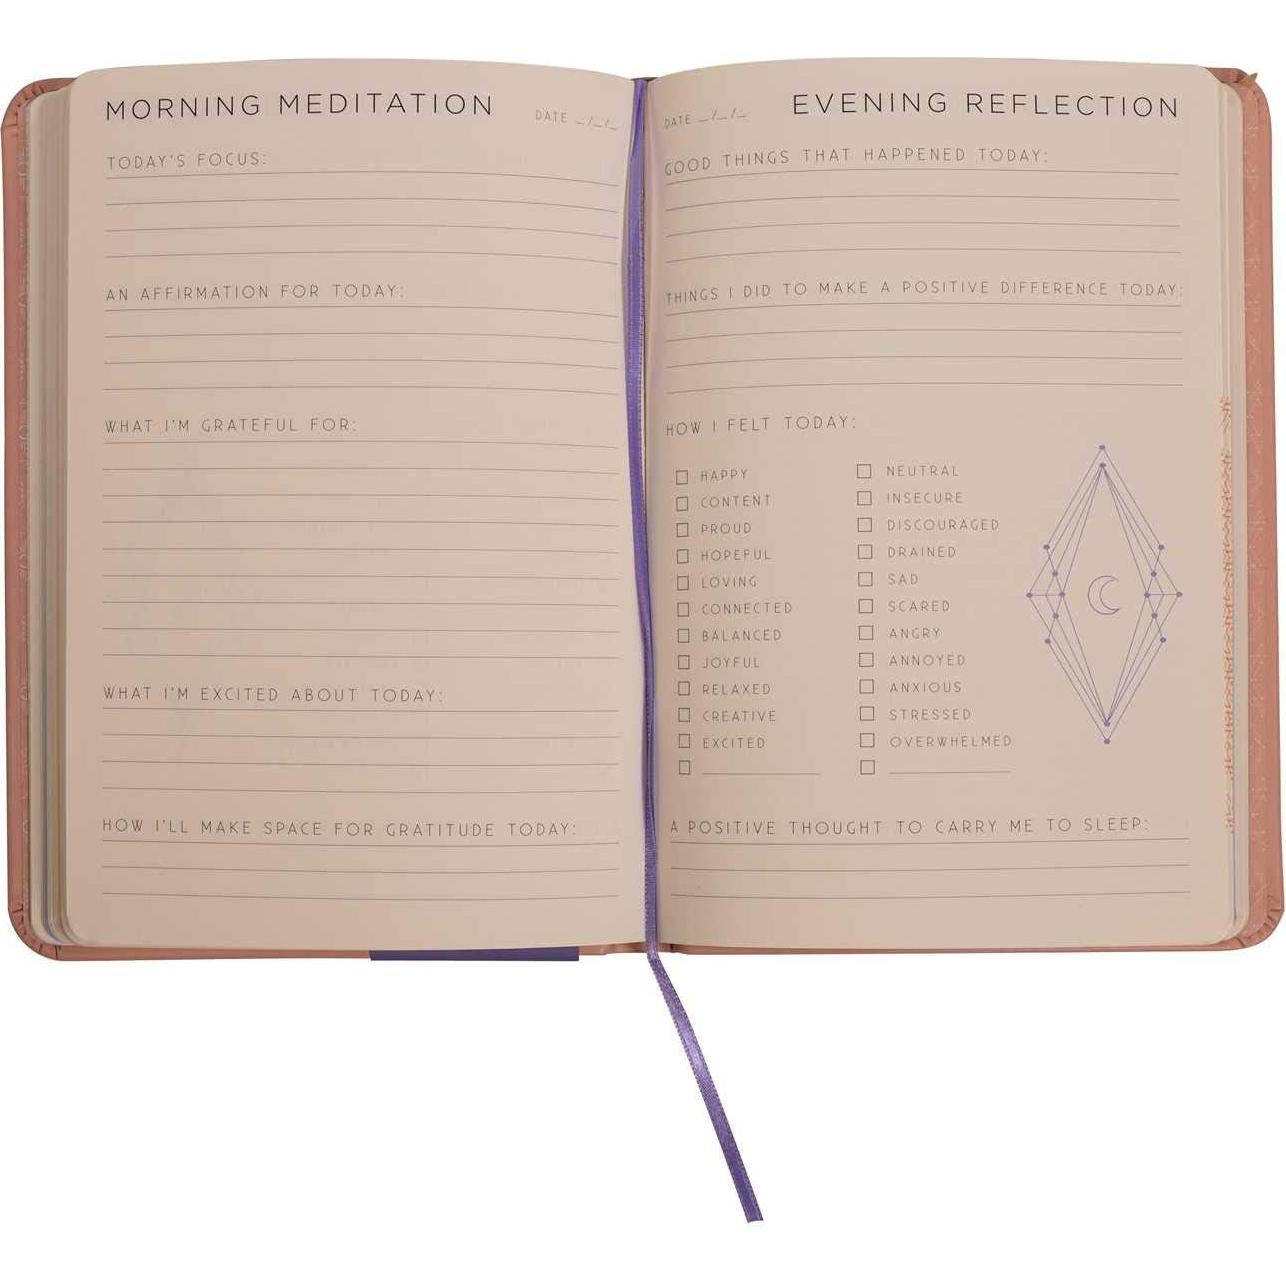 MORNING MEDITATION
DATE _/_/_
TODAY'S FOCUS:
AN AFFIRMATION FOR TODAY:
WHAT I'M GRATEFUL FOR:
WHAT I'M EXCITED ABOUT TODAY:
HOW I'LL MAKE SPACE FOR GRATITUDE TODAY:
DATE _/_/_
EVENING REFLECTION
GOOD THINGS THAT HAPPENED TODAY:
THINGS I DID TO MAKE A POSITIVE DIFFERENCE TODAY:
HOW I FELT TODAY:
HAPPY
CONTENT
PROUD
HOPEFUL
LOVING
CONNECTED
BALANCED
JOYFUL
RELAXED
CREATIVE
EXCITED
NEUTRAL
INSECURE
DISCOURAGED
DRAINED
SAD
SCARED
ANGRY
ANNOYED
ANXIOUS
STRESSED
OVERWHELMED
A POSITIVE THOUGHT TO CARRY ME TO SLEEP: